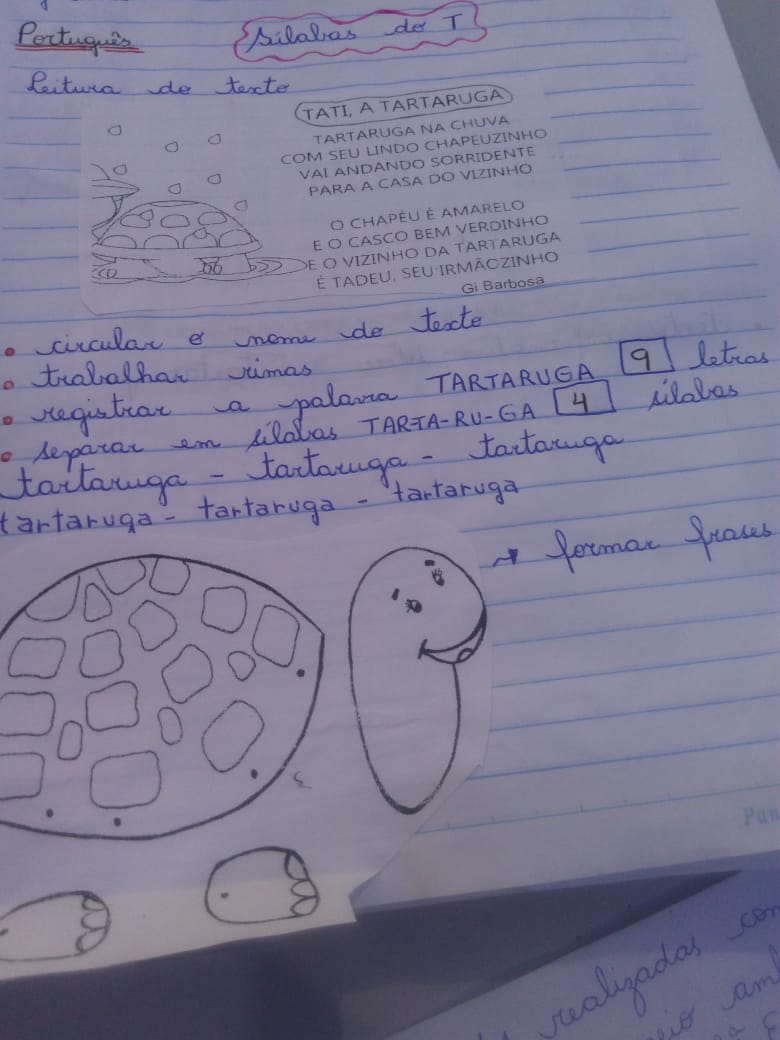 Português
Sílabas do T
Leitura do texto
TATI, A TARTARUGA
TARTARUGA NA CHUVA
COM SEU LINDO CHAPEUZINHO
VAI ANDANDO SORRIDENTE
PARA A CASA DO VIZINHO
O CHAPÉU É AMARELO
E O CASCO BEM VERDINHO
E O VIZINHO DA TARTARUGA
É TADEU, SEU IRMÃOZINHO
Gi Barbosa
• circular o nome do texto
• trabalhar rimas
• registrar a palavra TARTARUGA 9 letras
• separar em sílabas TAR-TA-RU-GA 4 sílabas
tartaruga - tartaruga - tartaruga
tartaruga - tartaruga - tartaruga
→ formar frases
Pan
realizadas com